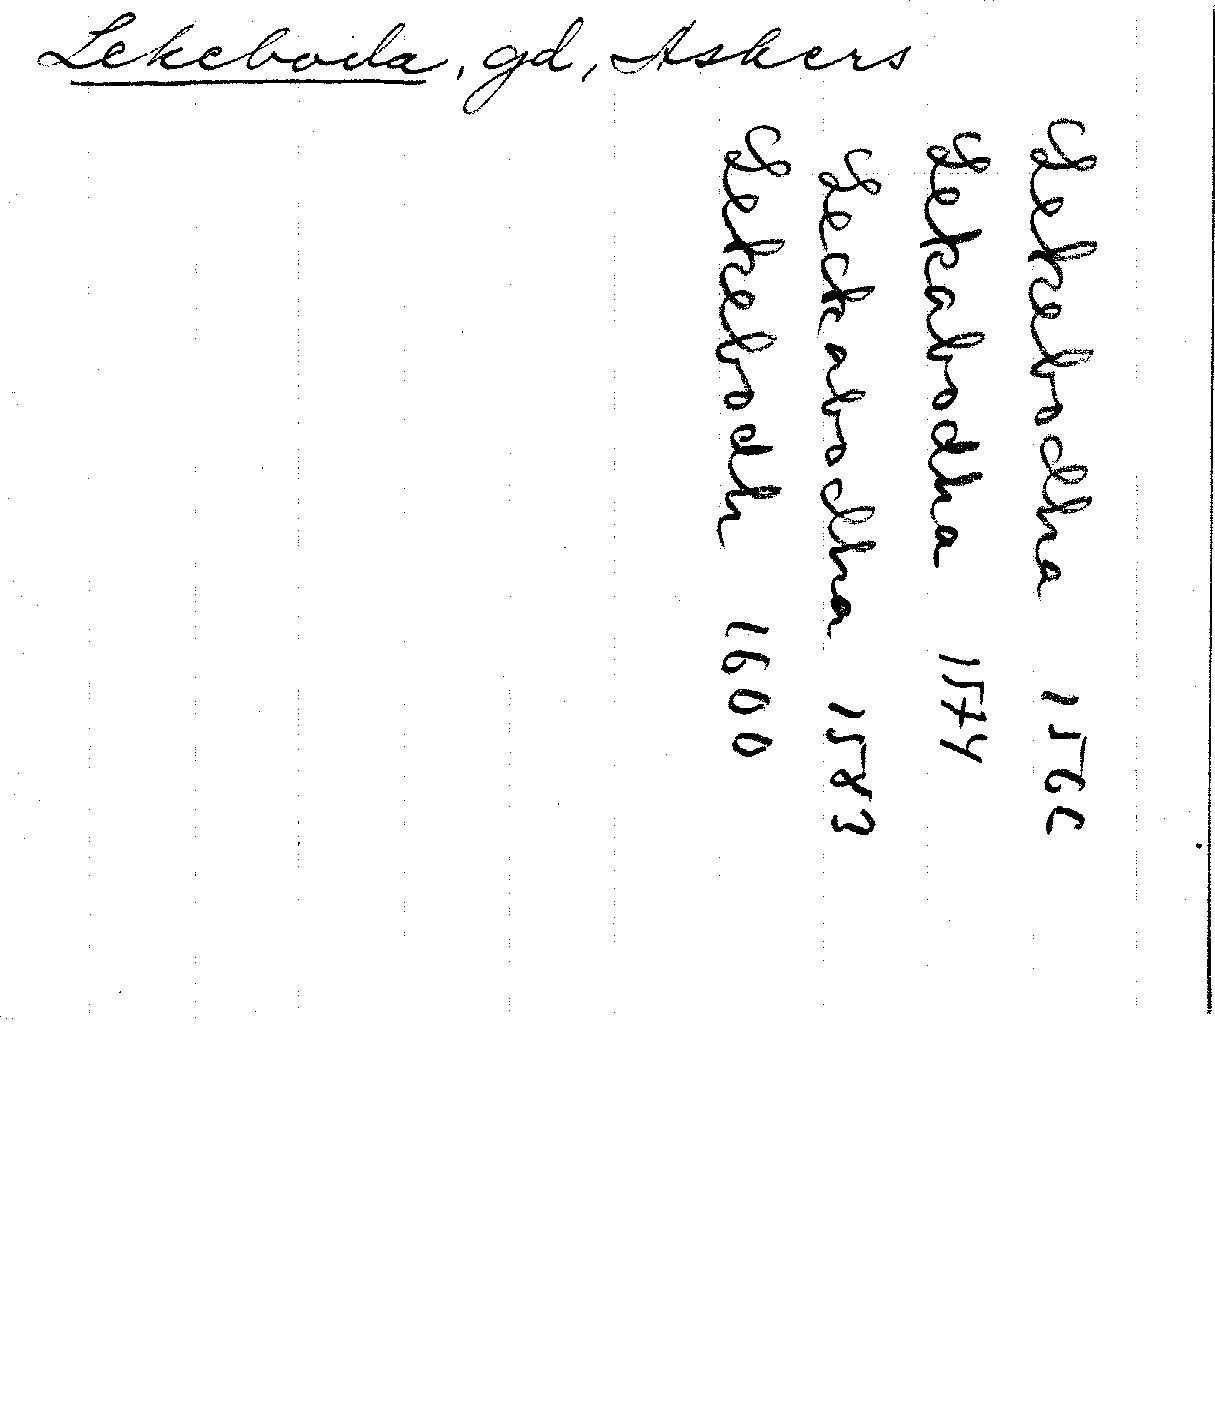 Lekeboda, gd, Askers
Lekebodha 1566
Lekabodha 1574
Leckabodha 1583
Lekebodh 1600